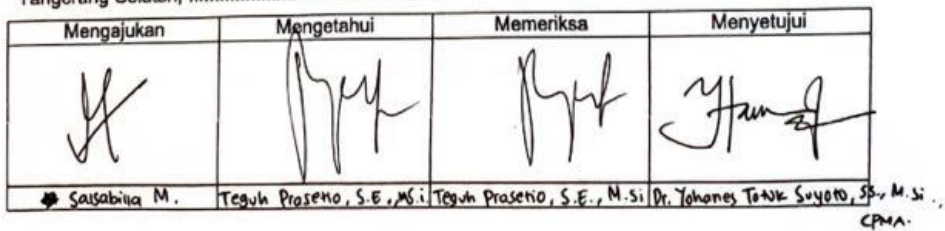 Tangerang Selatan, ..............................
Mengajukan Mengetahui Memeriksa Menyetujui
Salsabilla M. Teguh Prasetio, S.E., M.Si. Teguh Prasetio, S.E., M.Si Dr. Yohanes Totok Suyoto, SS., M.Si.,
CPMA.